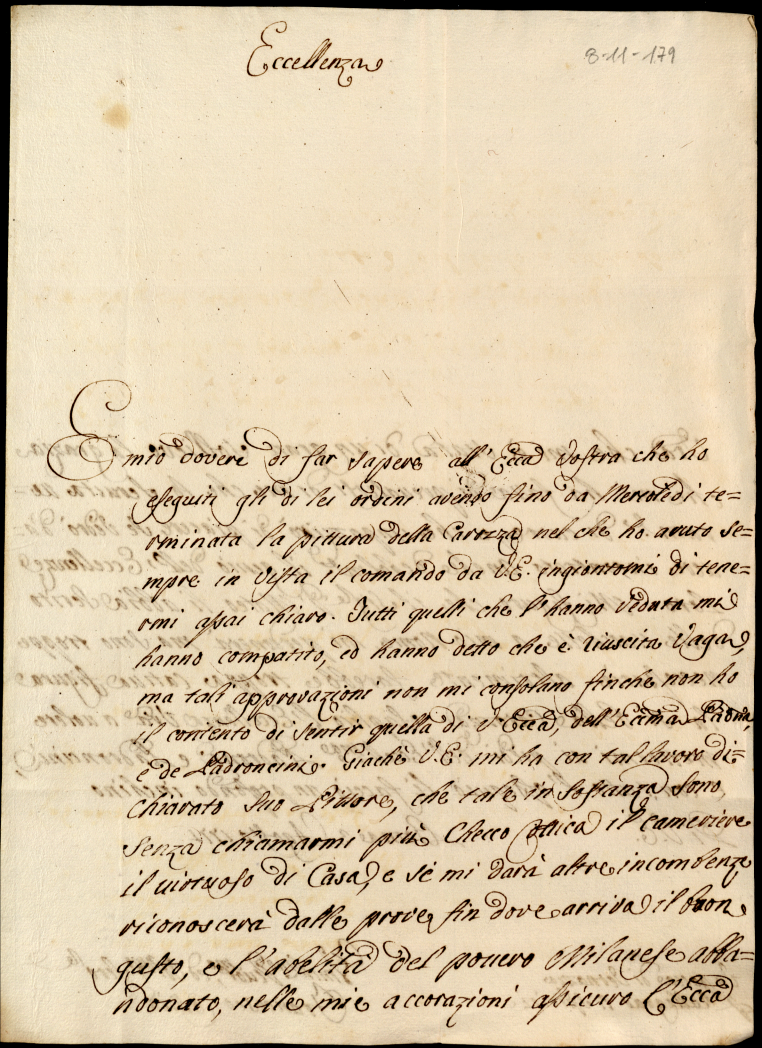 Eccellenza
8-11-179
E mio dovere di far sapere all'Ecca Vostra che ho
eseguiti gli di lei ordini avendo fino da Mercoledi te=
rminata la pittura della Carozza nel che ho avuto se=
mpre in vista il comando da V.E. ingiontomi di tene=
rmi assai chiaro. Tutti quelli che l'hanno veduta mi
hanno compatito, ed hanno detto che è riuscita Vaga,
ma tali approvazioni non mi consolano finche non ho
il contento di sentir quella di V. Ecca, dell'Ecma Padrona,
e de Padroncini. Giachè V.E. mi ha con tal lavoro di=
chiarato Suo Pittore, che tale in sostanza sono
senza chiamarmi più Checco il cameriere
il virtuoso di Casa, e se mi darà altre incombenze
riconoscerà dalle prove fin dove arriva il buon
gusto, e l'abelità del povero Milanese abba=
ndonato, nelle mie accorazioni assicuro l'Ecca